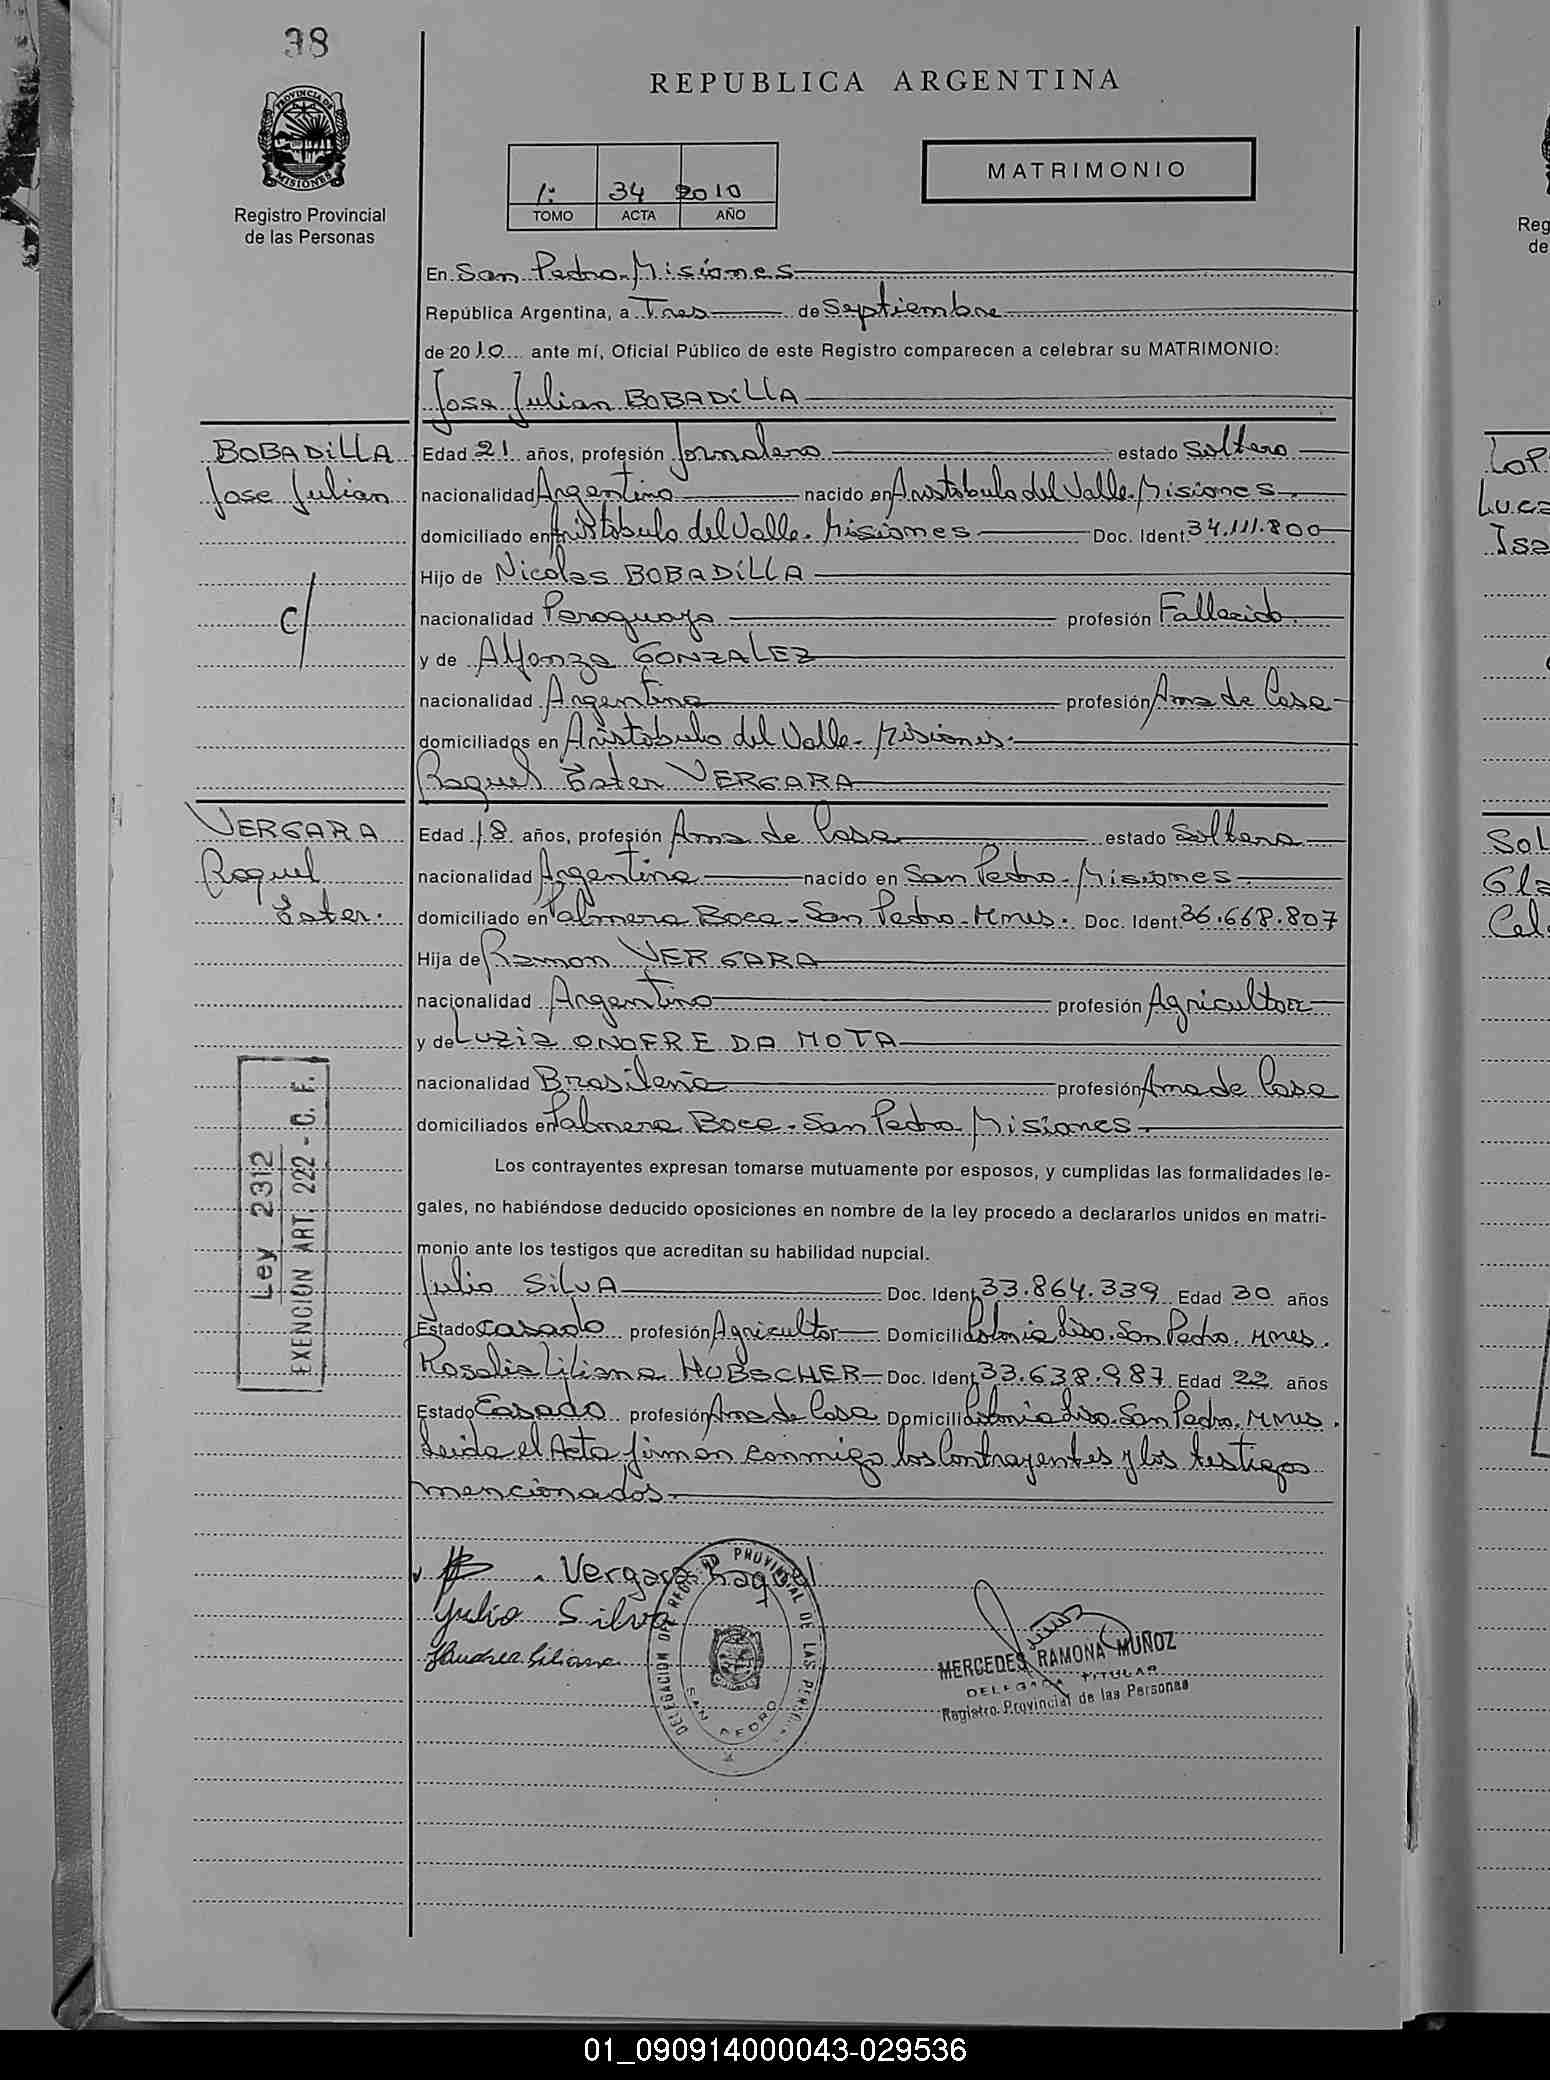 38
REPUBLICA ARGENTINA
PROVINCIA DE
MISIONES
Registro Provincial
de las Personas
1: 34 2010
TOMO ACTA AÑO
MATRIMONIO
En San Pedro-Misiones
República Argentina, a Tres de Septiembre
de 2010 ante mí, Oficial Público de este Registro comparecen a celebrar su MATRIMONIO:
Jose Julian BOBADILLA
BOBADILLA
Jose Julian
c/
Edad 21 años, profesión Jornalero estado Soltero
nacionalidad Argentino nacido en Aristobulo del Valle-Misiones-
domiciliado en Aristobulo del Valle-Misiones Doc. Ident. 34.111.800
Hijo de Nicolas BOBADILLA
nacionalidad Paraguayo profesión Fallecido-
y de Alfonza GONZALEZ
nacionalidad Argentina profesión Ama de Casa-
domiciliados en Aristobulo del Valle-Misiones.
Raquel Ester VERGARA
VERGARA
Raquel
Ester.
Edad 18 años, profesión Ama de Casa estado Soltera
nacionalidad Argentina nacido en San Pedro-Misiones-
domiciliado en Palmera Boca-San Pedro-Mnes. Doc. Ident. 36.668.807
Hija de Ramon VERGARA
nacionalidad Argentino profesión Agricultor
y de Luzia ONOFRE DA MOTA
nacionalidad Brasileña profesión Ama de Casa
domiciliados en Palmera Boca-San Pedro Misiones-
Los contrayentes expresan tomarse mutuamente por esposos, y cumplidas las formalidades le-
gales, no habiéndose deducido oposiciones en nombre de la ley procedo a declararlos unidos en matri-
monio ante los testigos que acreditan su habilidad nupcial.
Julio SILVA Doc. Ident. 33.864.339 Edad 30 años
Estado casado profesión Agricultor Domicilio Colonia Liso. San Pedro. Mnes.
Rosalia Liliana HUBSCHER Doc. Ident. 33.638.987 Edad 22 años
Estado Casado profesión Ama de Casa Domicilio Colonia Liso. San Pedro. Mnes.
Leida el Acta firman conmigo los Contrayentes y los testigos
mencionados
Ley 2312
EXENCION ART. 222 - C. F.
Vergara Raquel
Julio Silva
Liliana
DELEGACION DEL REGISTRO PROVINCIAL DE LAS PERSONAS
SAN PEDRO
MERCEDES RAMONA MUÑOZ
DELEGADA TITULAR
Registro Provincial de las Personas
Reg
de
Luca
Isa
SOL
Gla
Cel
01_090914000043-029536